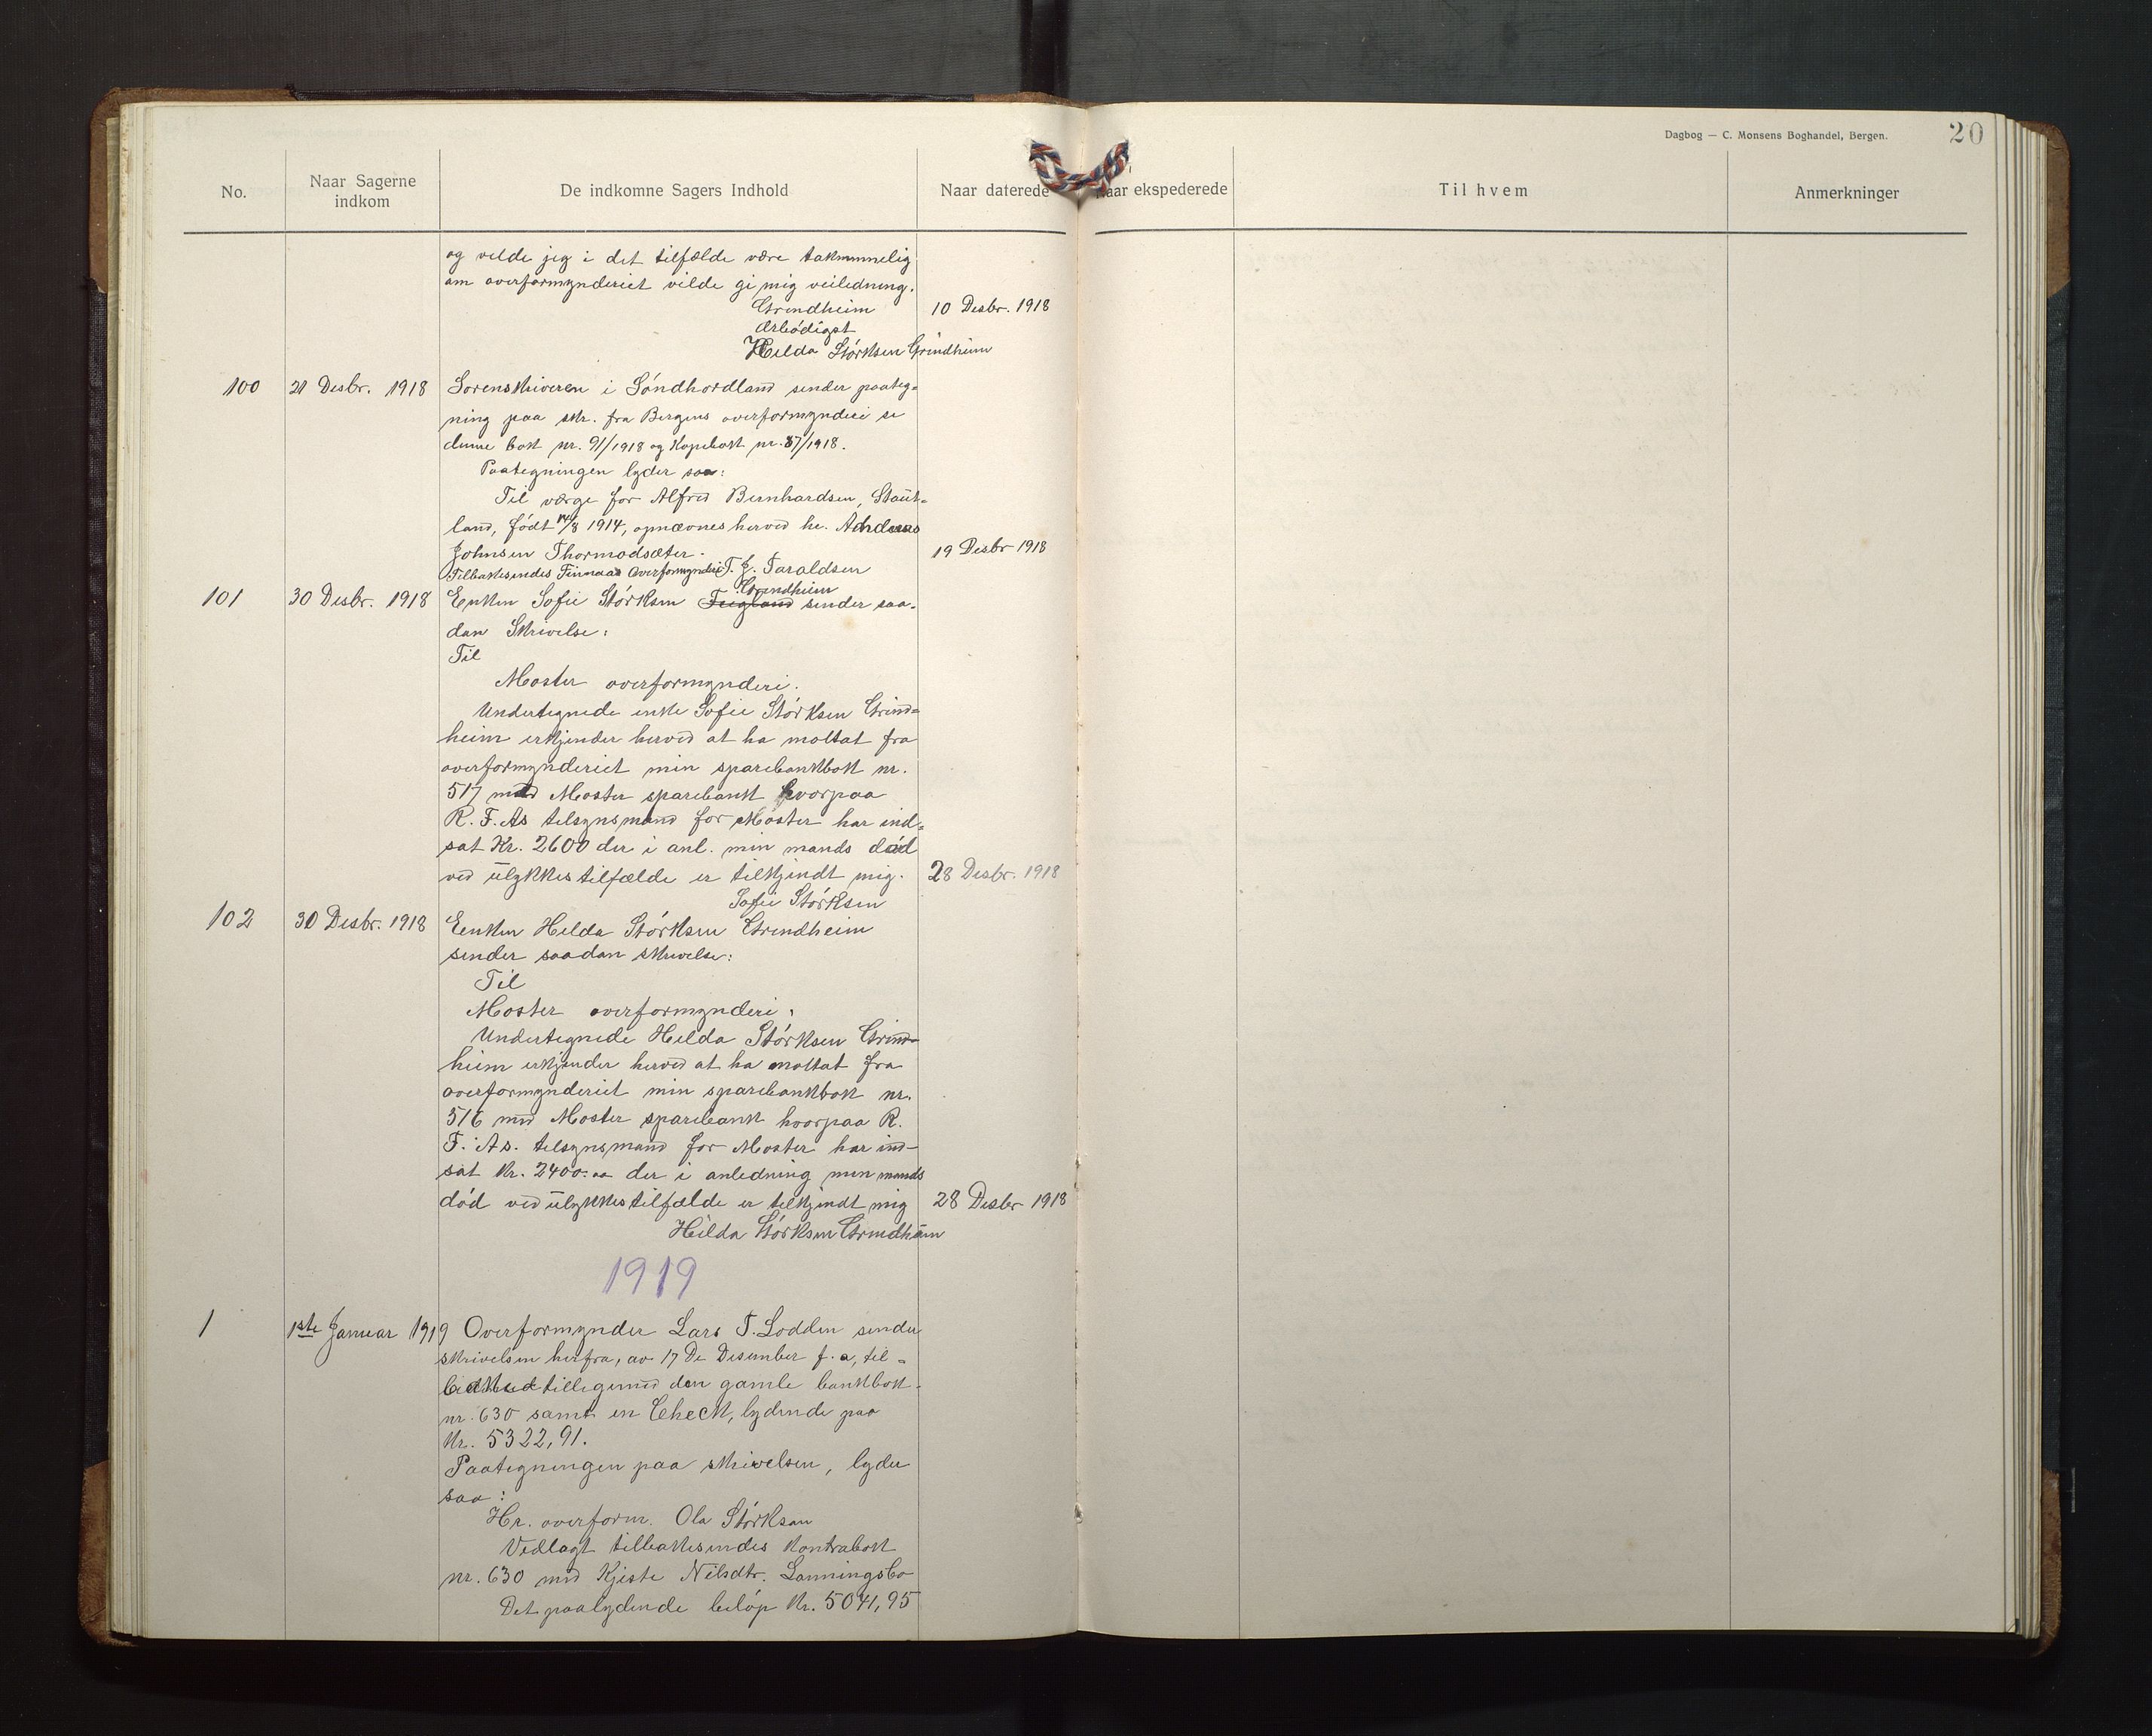 Dagbog — C. Monsens Boghandel, Bergen.
20
No.
Naar Sagerne indkom
De indkomne Sagers Indhold
Naar daterede
Naar ekspederede
Til hvem
Anmerkninger
og velde jeg i det tilfælde være taknemmelig
om overformynderiet vilde gi mig veiledning.
Grindheim 10 Desbr. 1918
Ærbødigst
Hilda Størksen Grindheim
100 21 Desbr. 1918 Sorenskriveren i Søndhordland sender paateg=
ning paa skr. fra Bergens overformynderi se
denne bok nr. 91/1918 og Kopibok nr. 87/1918.
Paategningen lyder saa:
Til værge for Alfred Bernhardsen, Staut=
land, født 14/8 1914, opnævnes herved hr. Andreas
Johnsen Thormodsæter. 19 Desbr 1918
Tilbakesendes Finnaas Overformynderi T. J. Taraldsen
Grindheim
101 30 Desbr. 1918 Enken Sofie Størksen Fugland sender saa-
dan Skrivelse:
Til
Moster overformynderi.
Undertegnede enke Sofie Størksen Grind=
heim erkjender herved at ha mottat fra
overformynderiet min sparebankbok nr.
517 med Moster sparebank hvorpaa
R. F. As tilsynsmand for Moster har ind=
sat Kr. 2600 der i anl. min mands død
ved ulykkestilfælde er tilkjendt mig. 28 Desbr. 1918
Sofie Størksen
102 30 Desbr. 1918 Enken Hilda Størksen Grindheim
sender saadan skrivelse:
Til
Moster overformynderi,
Undertegnede Hilda Størksen Grind=
heim erkjender herved at ha mottat fra
overformynderiet min sparebankbok nr.
516 med Moster sparebank hvorpaa R.
F. As. tilsynsmand for Moster har ind-
sat Kr. 2400.00 der i anledning min mands
død ved ulykkestilfælde er tilkjendt mig 28 Desbr 1918
Hilda Størksen Grindheim
1919
1 1ste Januar 1919 Overformynder Lars T. Lodden sender
skrivelsen herfra, av 17 De Desember f. a, til=
bake tillegemed den gamle bankbok
nr. 630 samt en Check, lydende paa
Kr. 5322,91.
Paategningen paa skrivelsen, lyder
saa:
Hr. overform. Ola Størksen
Vedlagt tilbakesendes Kontrabok
nr. 630 med Kjiste Nilsdtr. Lønningsbo
Det paalydende beløp Kr. 5041,95